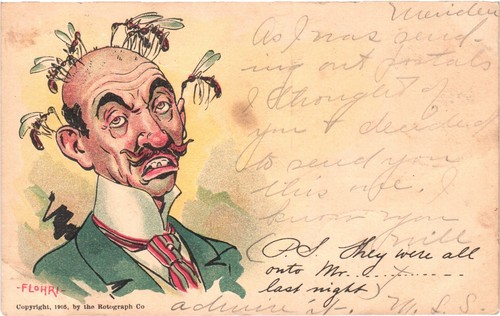 Meriden
As I was send-
ing out postals
I thought of
you & decided
to send you
this one. I
know you
will
(P.S. They were all
onto Mr. ............
last night)
admire it. M. L. S.
-FLOHRI-
Copyright, 1905, by the Rotograph Co